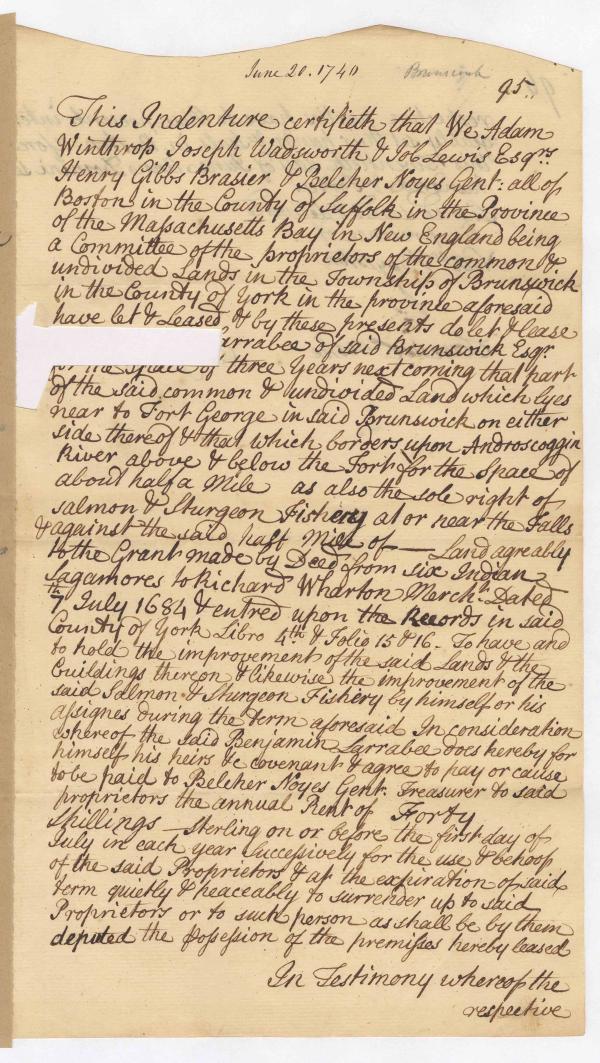 June 20. 1740
Brunswick
95.
This Indenture certifieth that We Adam
Winthrop Joseph Wadsworth & Job Lewis Esqrs.
Henry Gibbs Brasier & Belcher Noyes Gent: all of
Boston in the County of Suffolk in the Province
of the Massachusetts Bay in New England being
a Committee of the proprietors of the common &
undivided Lands in the Township of Brunswick
in the County of York in the province aforesaid
have let & Leased & by these presents do let & lease
arrabee of said Brunswick Esqr.
for the Space of three Years next coming that part
of the said common & undivided Land which lyes
near to Fort George in said Brunswick on either
side thereof & that which borders upon Androscoggin
River above & below the Fort for the Space of
about half a Mile as also the sole right of
Salmon & Sturgeon Fishery at or near the Falls
& against the said half Mile of — Land agreably
to the Grant made by Deed from six Indian
Sagamores to Richard Wharton March.t Dated
7th July 1684 & entred upon the Records in said
County of York Libro 4th & Folio 15 & 16 - To have and
to hold the improvement of the said Lands & the
buildings thereon & likewise the improvement of the
said Salmon & Sturgeon Fishery by himself or his
assignes during the term aforesaid In consideration
whereof the said Benjamin Larrabee does hereby for
himself his heirs &c covenant & agree to pay or cause
to be paid to Belcher Noyes Gent: Treasurer to said
proprietors the annual Rent of Forty
Shillings — Sterling on or before the first day of
July in each year Successively for the use & behoof
of the said Proprietors & at the expiration of said
term quietly & peaceably to surrender up to said
Proprietors or to such person as shall be by them
deputed the Possession of the premisses hereby leased
In Testimony whereof the
respective